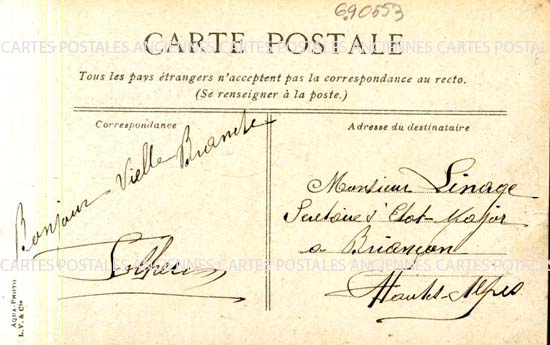 690553
CARTE POSTALE
CARTES POSTALES ANCIENNES CARTES POSTALES ANCIENNES CARTES POSTALES
Tous les pays étrangers n'acceptent pas la correspondance au recto.
(Se renseigner à la poste.)
Correspondance
Bonjour Vielle Branche
AQUA-PHOTO
L.V. & Cie
Adresse du destinataire
Monsieur Linage
Secretaire d'Etat-Major
a Briançon
Hautes-Alpes
CARTES POSTALES ANCIENNES CARTES POSTALES ANCIENNES CARTES POSTALES